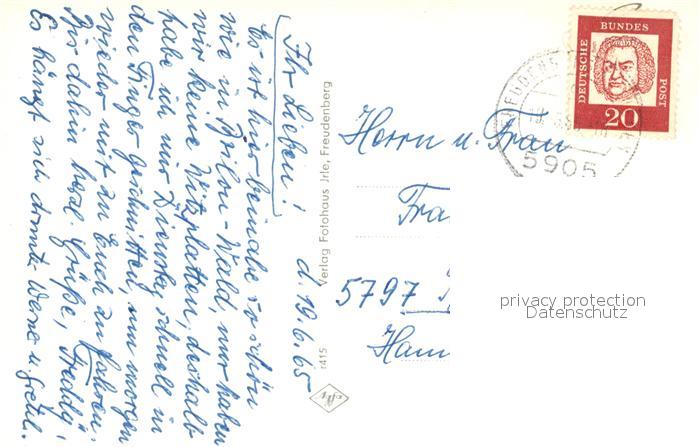 d. 19.6.65
Ihr Lieben!
Es ist hier beinahe so schön
wie in Brilon-Wald, nur haben
wir keine Sitzplatten, deshalb
habe ich mir Dienstag schnell in
den Finger geschnitten, um morgen
wieder mit zu Euch zu fahren.
Bis dahin herzl. Grüße, Freddy!
Es hängt sich dran
Verlag Fotohaus Irle, Freudenberg
r415
DEUTSCHE BUNDES POST
20
5905
Herrn u. Frau
Fra
5797
Ham
privacy protection
Datenschutz